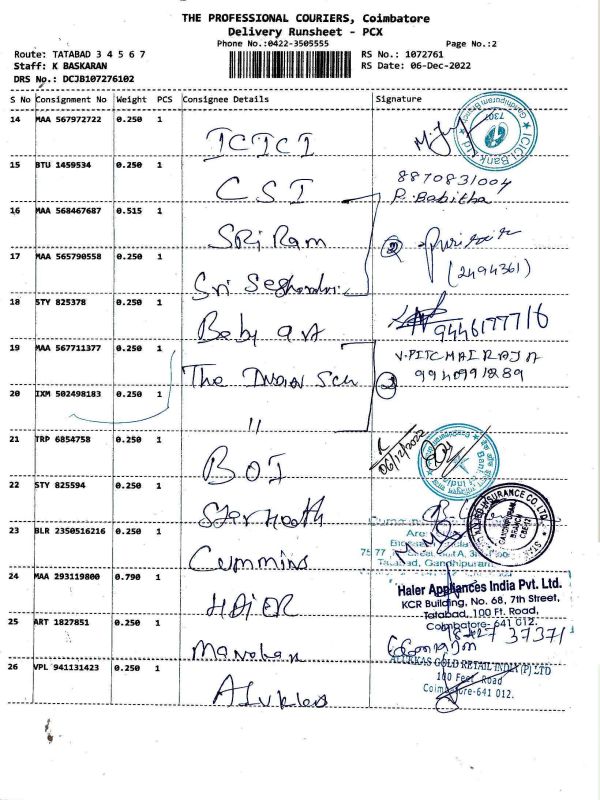 THE PROFESSIONAL COURIERS, Coimbatore
Delivery Runsheet - PCX
Phone No.:0422-3505555
Page No.:2
Route: TATABAD 3 4 5 6 7
RS No.: 1072761
Staff: K BASKARAN
RS Date: 06-Dec-2022
DRS No.: DCJB107276102
S No Consignment No Weight PCS Consignee Details Signature
14 MAA 567972722 0.250 1 ICICI
ICICI Bank Ltd
Gandhipuram Branch
7301
15 BTU 1459534 0.250 1 CSI 8870831004
R. Babitha
16 MAA 568467687 0.515 1 SRi Ram
17 MAA 565790558 0.250 1 Sri
(2494361)
18 STY 825378 0.250 1 Baby art 9446177716
19 MAA 567711377 0.250 1 The V. PITCHAI RAJA
9940991289
20 IXM 502498183 0.250 1 "
21 TRP 6854758 0.250 1 BOI
06/12/2022
22 STY 825594 0.250 1 Star
23 BLR 2350516216 0.250 1 Cummins
Tatabad, Gandhipuram
24 MAA 293119800 0.790 1 HAiER
Haier Appliances India Pvt. Ltd.
KCR Building, No. 68, 7th Street,
Tatabad, 100 Ft. Road,
Coimbatore- 641 012.
25 ART 1827851 0.250 1 Manohar
37371
26 VPL 941131423 0.250 1 Alukkas
ALUKKAS GOLD RETAIL INDIA (P) LTD
100 Feet Road
Coimbatore-641 012.